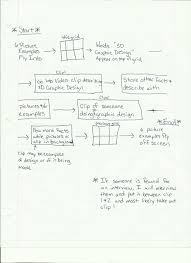 * Start *
6 Picture
Examples
Fly Into
Words "3D
Graphic Design"
Appear on the grid
Clip
Go into Video clip describe
3D Graphic Design
Store other Facts
describe with
pictures
examples
Clip of someone
doing graphic design
* End *
Few more Facts
while pictures or
clip in background
6 picture
examples fly
off screen
Clip may be examples
of design or of it being
made
* If someone is found for
an interview, I will interview
them and put it between clip
1 + 2 and most likely take out
clip 1